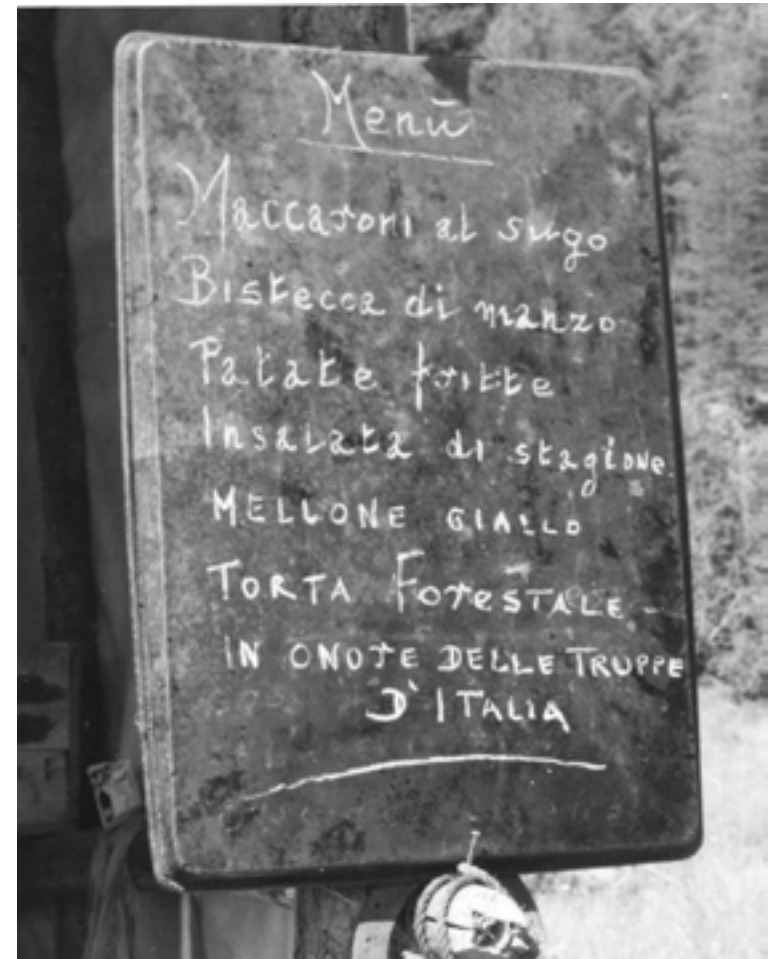 Menù
Maccaroni al sugo
Bistecca di manzo
Patate fritte
Insalata di stagione.
MELLONE GIALLO
TORTA ForeSTALE -
IN ONOrE DELLE TRUPPE
D'ITALIA